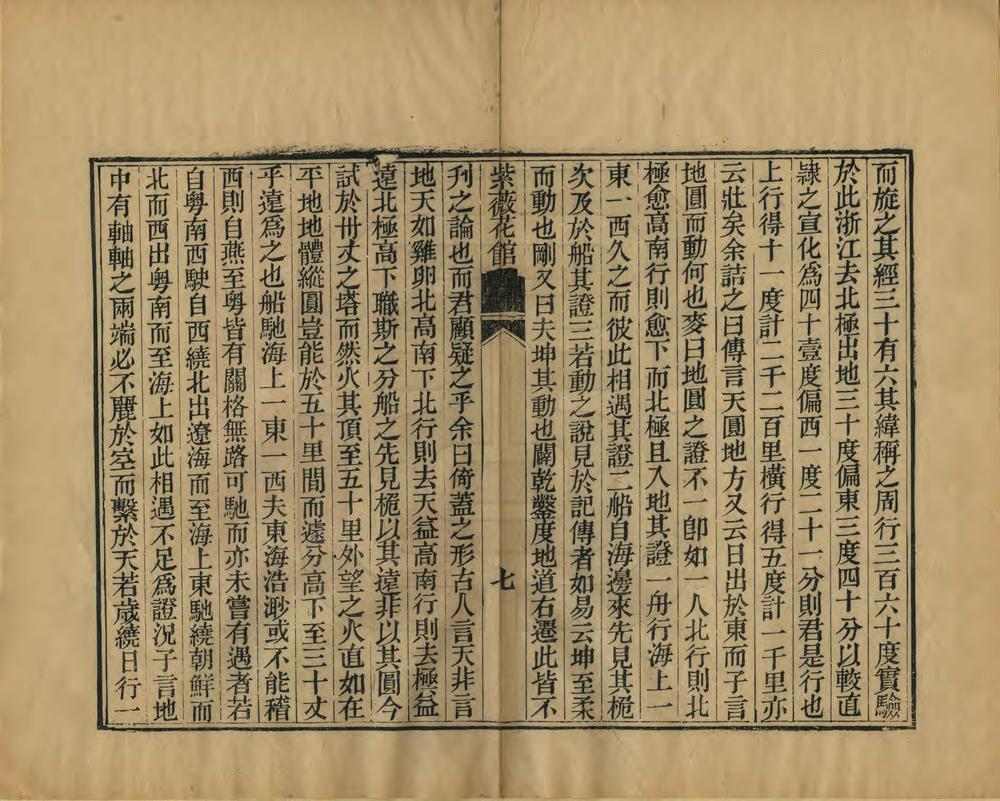 而旋之其經三十有六其緯稱之周行三百六十度實驗
於此浙江去北極出地三十度偏東三度四十分以較直
隸之宣化爲四十壹度偏西一度二十一分則君是行也
上行得十一度計二千二百里橫行得五度計一千里亦
云壯矣余詰之曰傳言天圓地方又云日出於東而子言
地圓而動何也麥曰地圓之證不一卽如一人北行則北
極愈高南行則愈下而北極且入地其證一舟行海上一
東一西久之而彼此相遇其證二船自海邊來先見其桅
次及於船其證三若動之說見於記傳者如易云坤至柔
而動也剛又曰夫坤其動也闢乾鑿度地道右遷此皆不
紫薇花館
七
刋之論也而君顧疑之乎余曰倚蓋之形古人言天非言
地天如雞卵北高南下北行則去天益高南行則去極益
遠北極高下職斯之分船之先見桅以其遠非以其圓今
試於卅丈之塔而然火其頂至五十里外望之火直如在
平地地體縱圓豈能於五十里間而遽分高下至三十丈
乎遠爲之也船馳海上一東一西夫東海浩渺或不能稽
西則自燕至粵皆有關格無路可馳而亦未嘗有遇者若
自粵南西駛自西繞北出遼海而至海上東馳繞朝鮮而
北而西出粵南而至海上如此相遇不足爲證況子言地
中有軸軸之兩端必不麗於空而繫於天若歲繞日行一